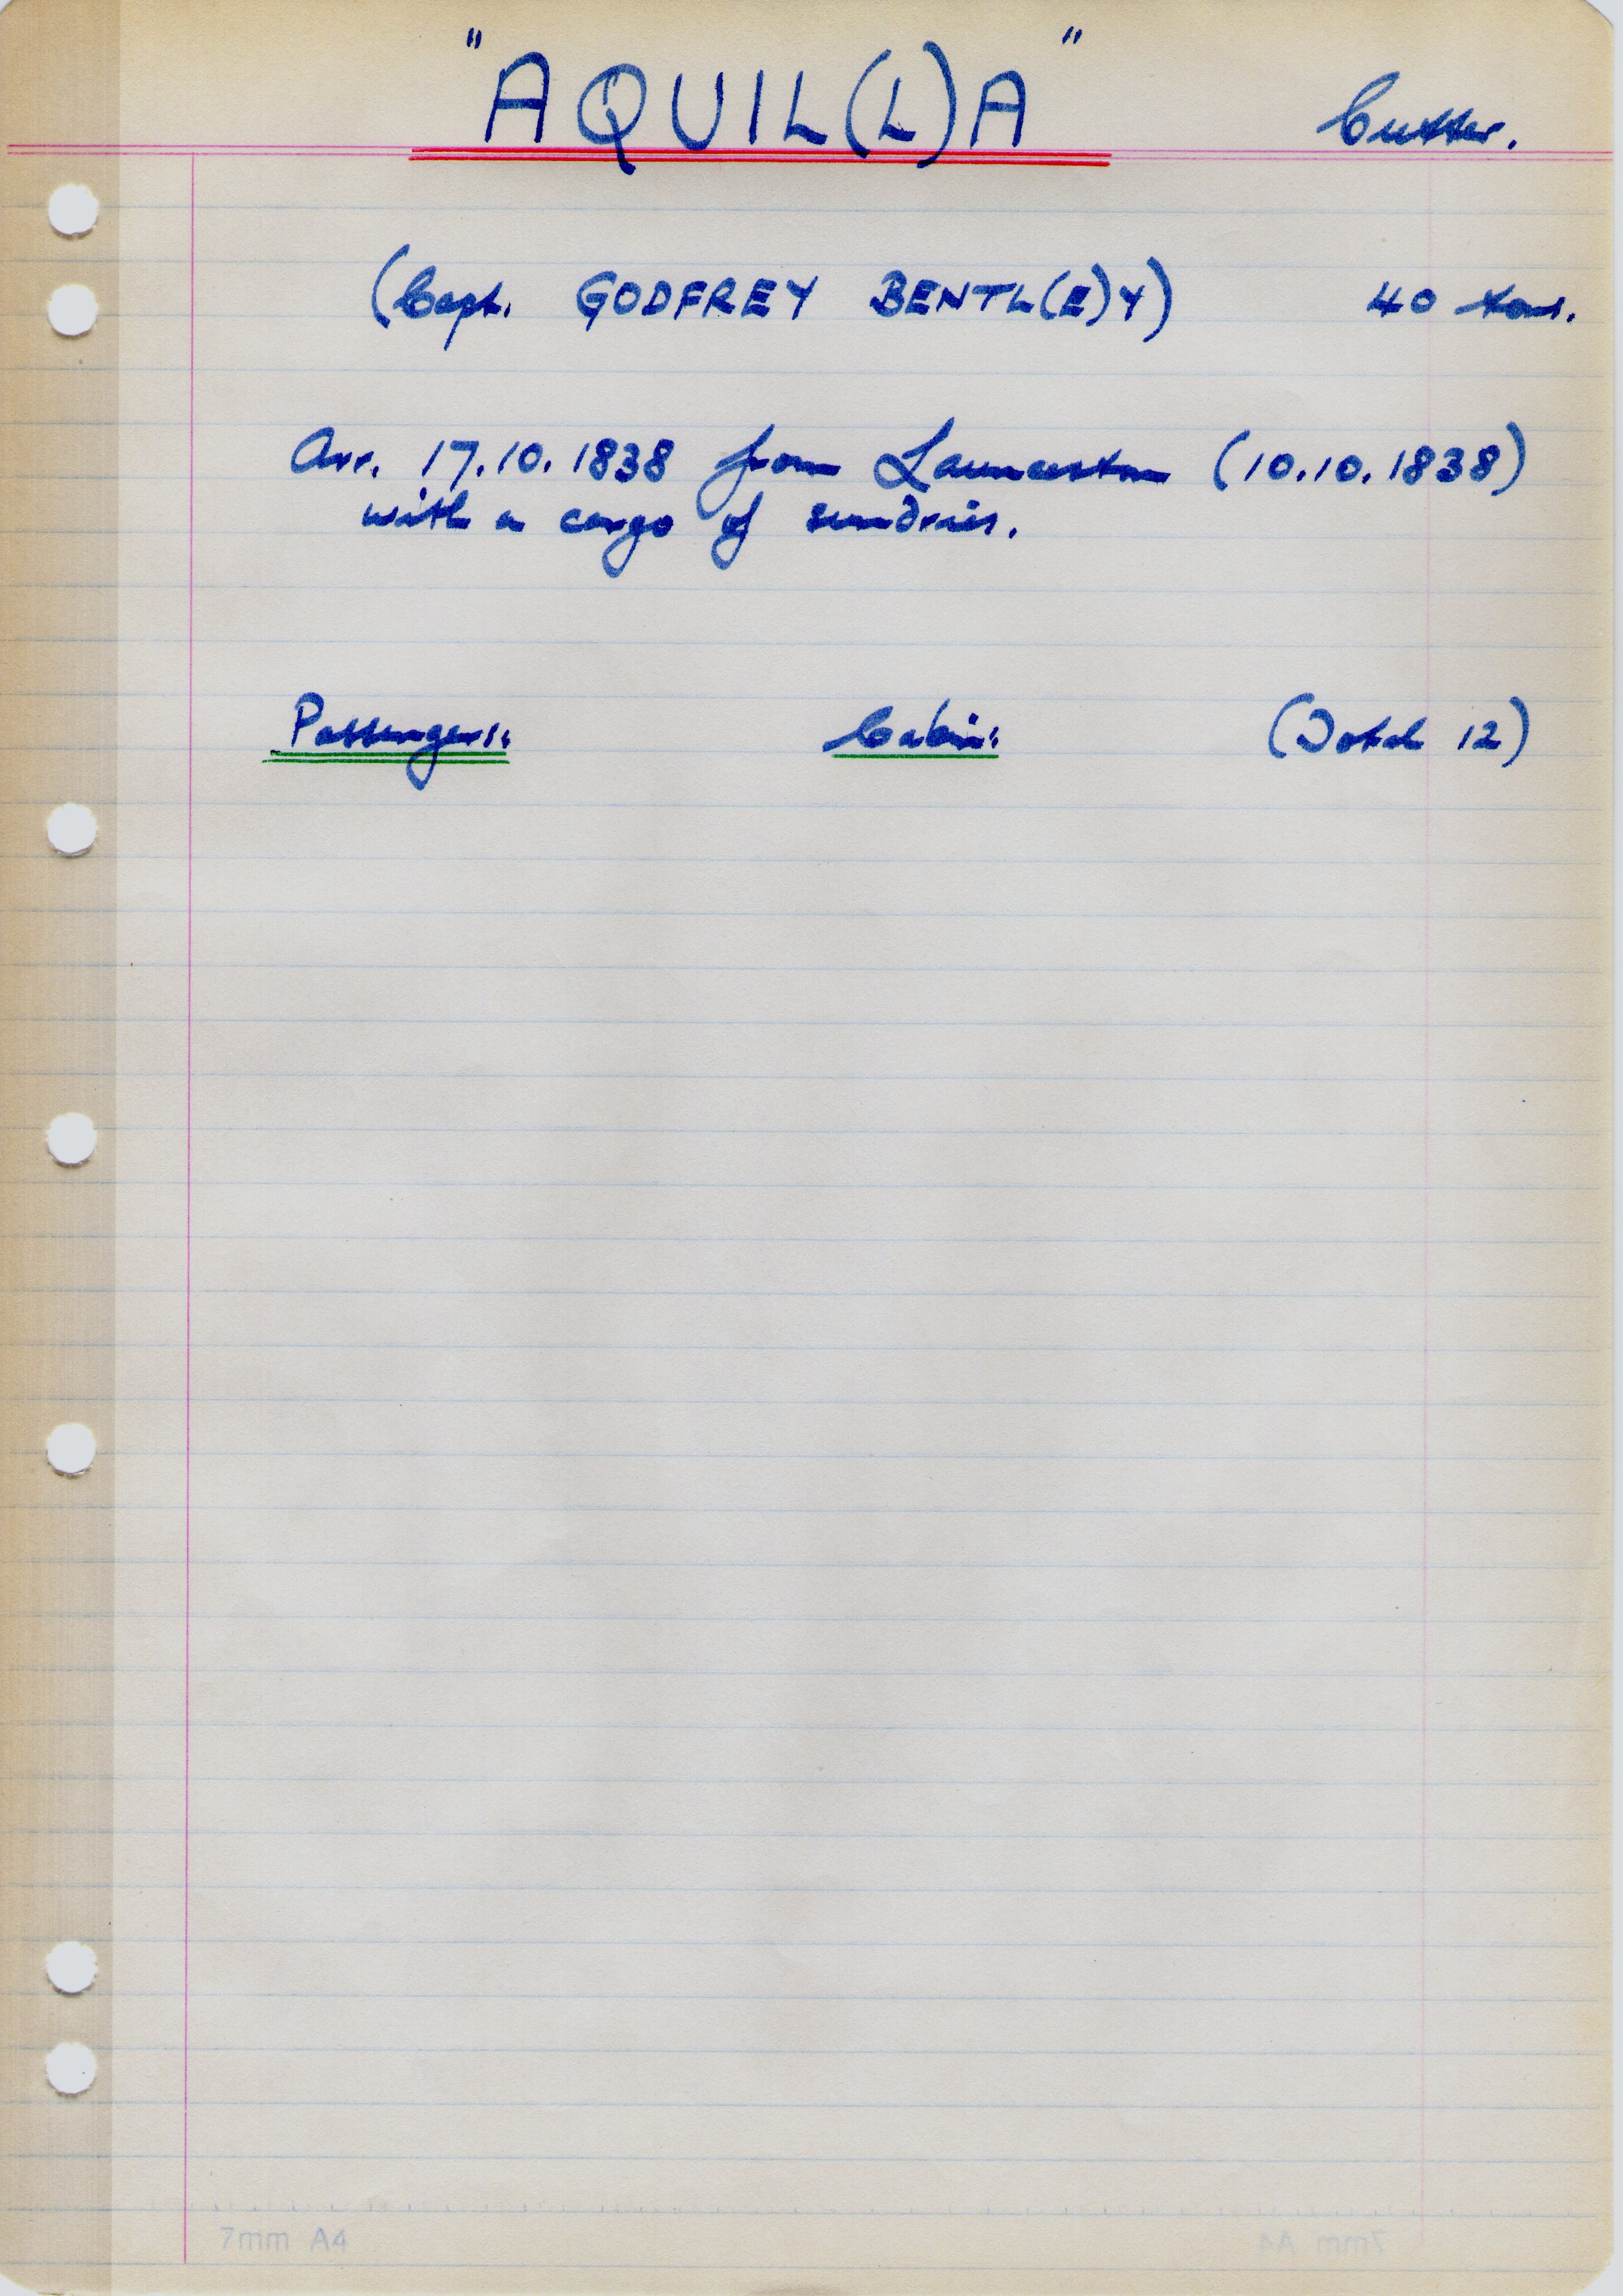 "AQUIL(L)A" Cutter.
(Capt. GODFREY BENTL(E)Y) 40 tons.
Arr. 17.10.1838 from Launceston (10.10.1838)
with a cargo of sundries.
Passengers: Cabin: (Total 12)
7mm A4